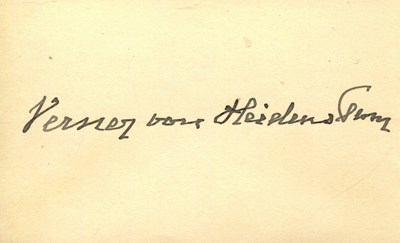 Verner von Heidenstam